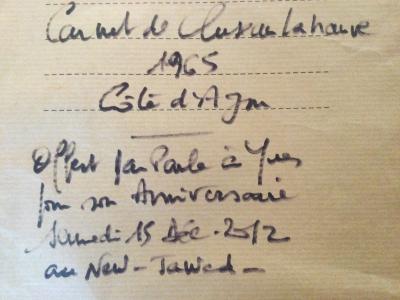 Carnet de
1965
Côte d'Azur
Offert par Paule à Yves
pour son Anniversaire
Samedi 15 Déc. 2012
au New-